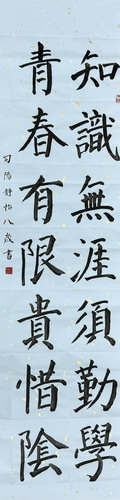 知識無涯須勤學
青春有限貴惜陰
司陽靜怡八歲書